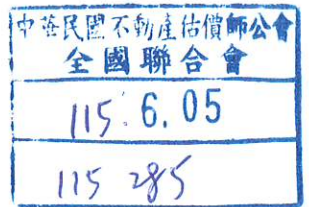 中華民國不動產估價師公會
全國聯合會
115.6.05
115 285